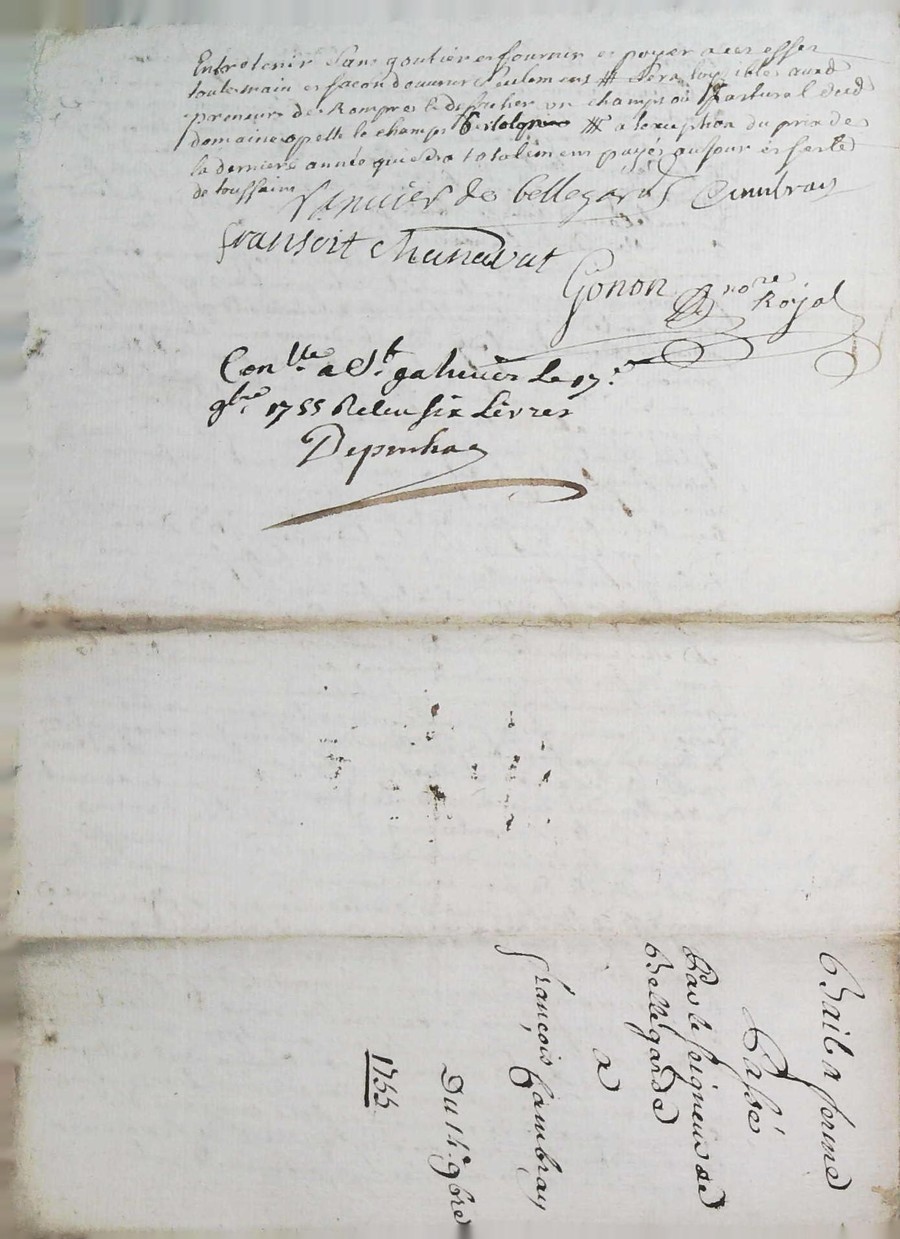 Entretenir sans goutieres fournir et payer a cet effet
toute main et facon douvrier seulement # sera loysible aud
preneur de Rompre et deficher un champ ou pastural dud
domaine apelle le champt # a lexception du prix de
la derniere année qui sera totalement payé au jour et feste
de toussaint
Vanuier de bellegarde Cambray
fransoit Chanavat
Gonon Nore Royal
Conlle a St. galmier Le 17e
9bre 1755 Releu six Livres
Bail a ferme
Passé
Par le seigneur de
Bellegarde
a
françois Cambray
Du 14e 9bre
1755